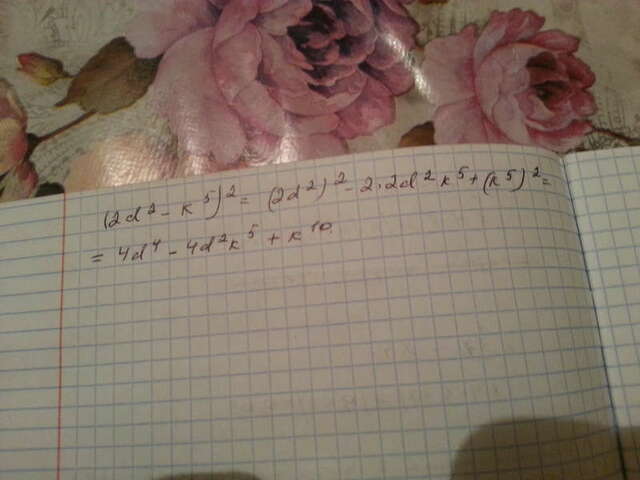 (2d² - k⁵)² = (2d²)² - 2·2d²k⁵ + (k⁵)² =
= 4d⁴ - 4d²k⁵ + k¹⁰.